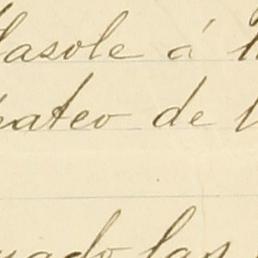 lasole á
pateo de l
uado las